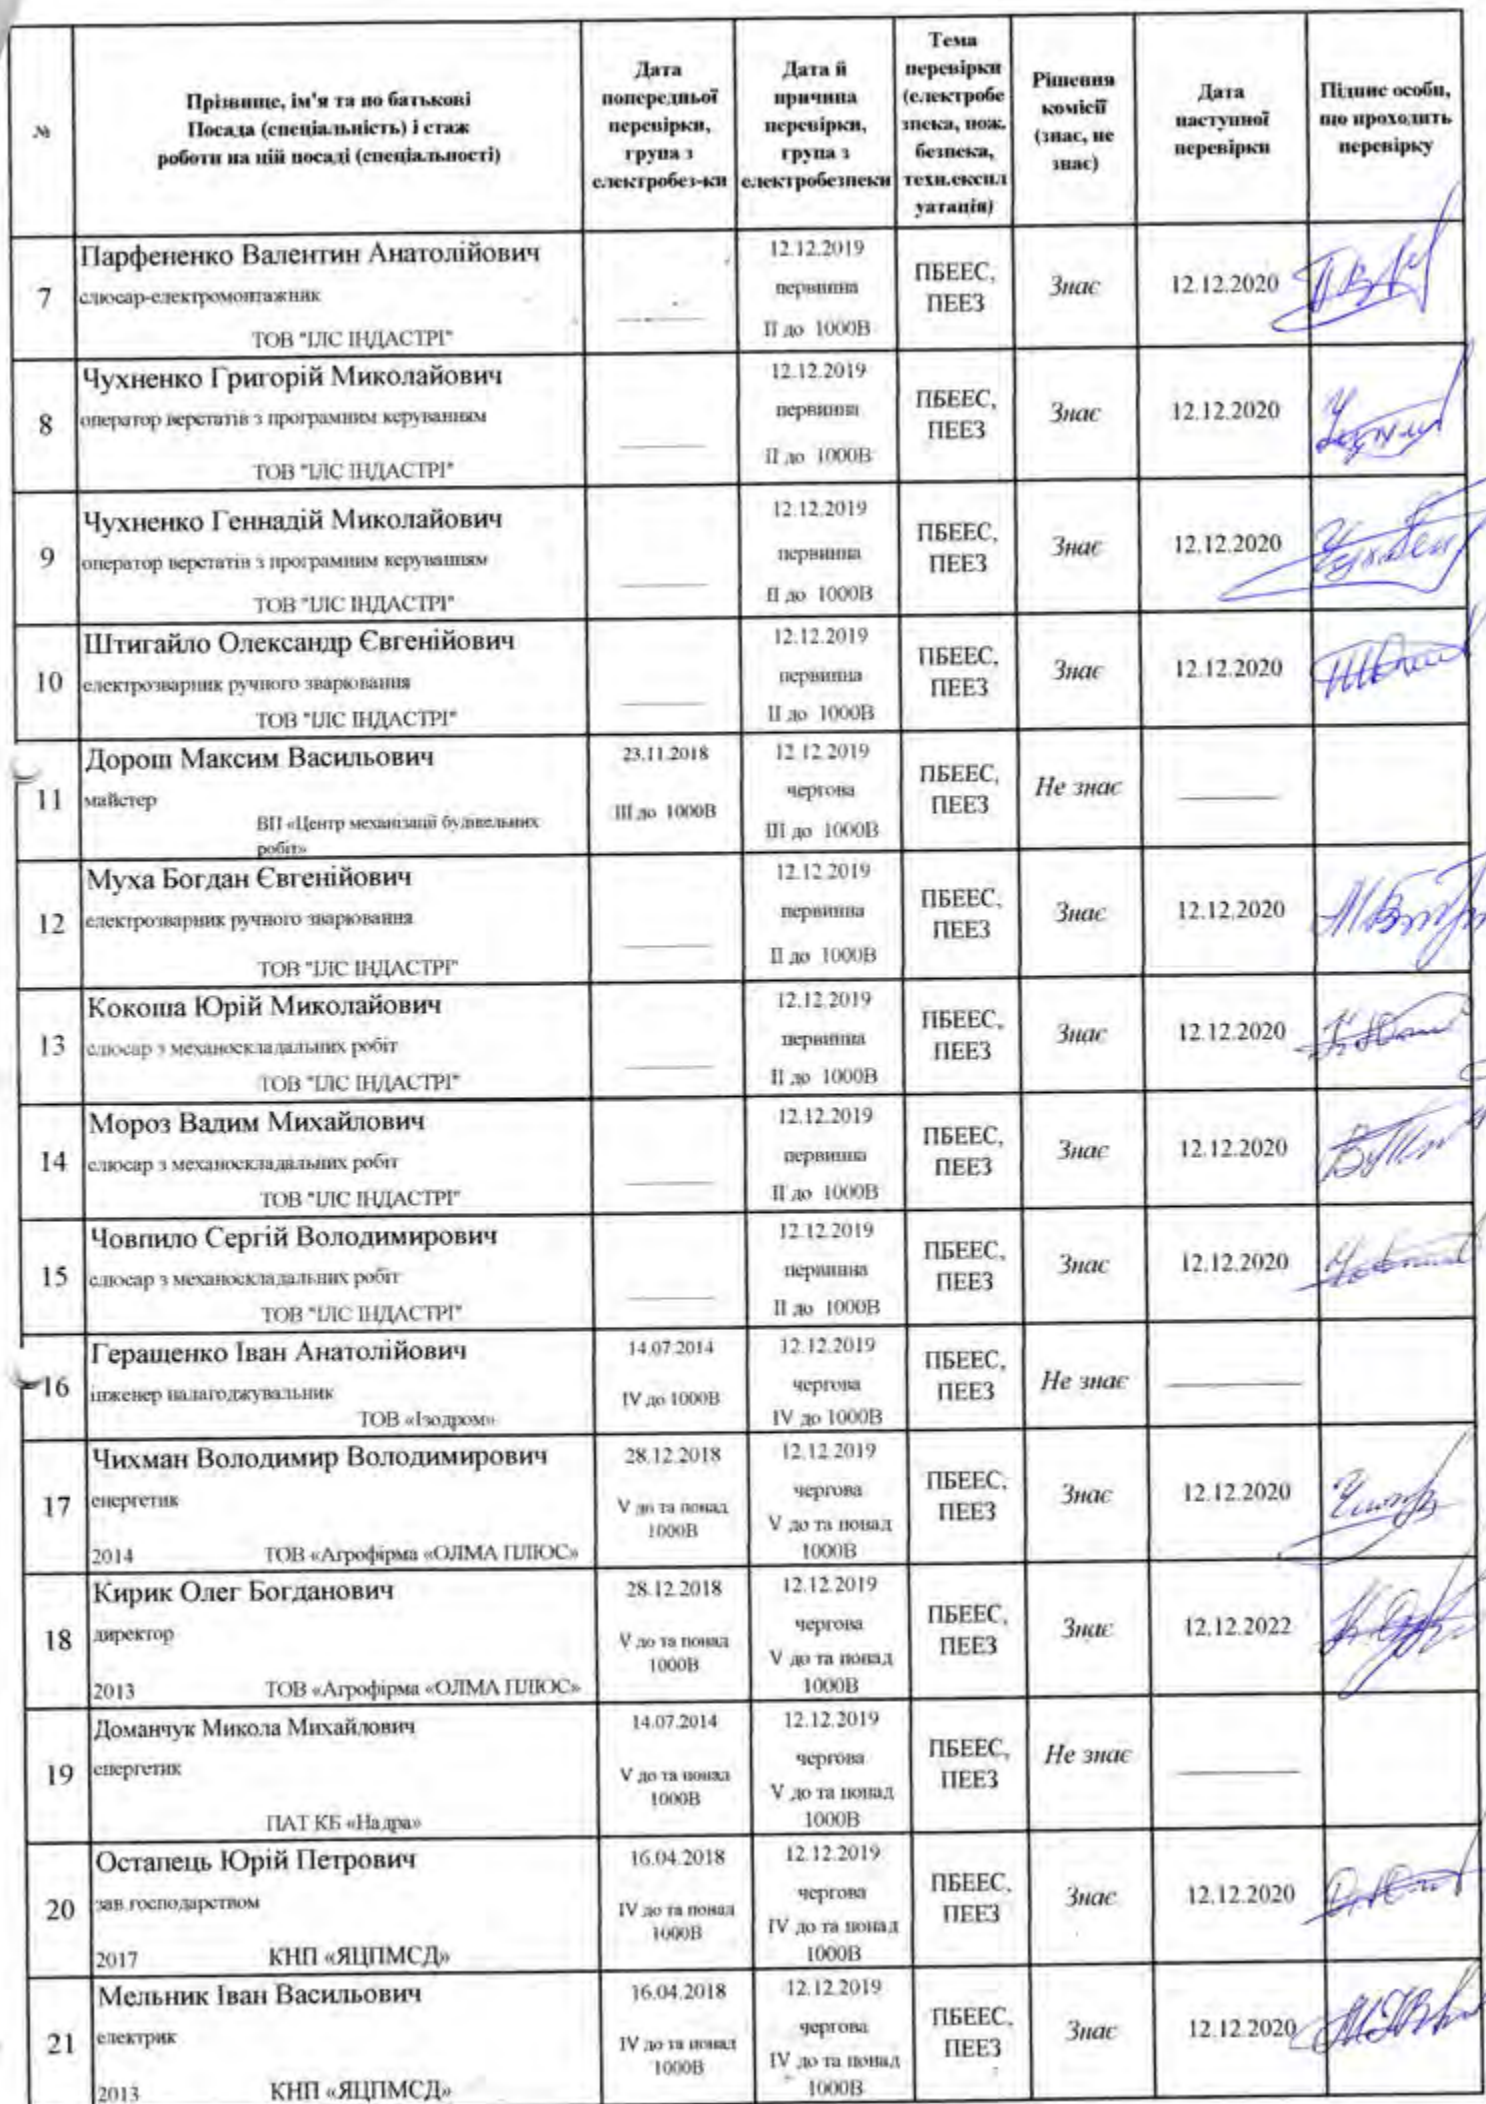 №
Прізвище, ім'я та по батькові
Посада (спеціальність) і стаж
роботи на цій посаді (спеціальності)
Дата
попередньої
перевірки,
група з
електробез-ки
Дата й
причина
перевірки,
група з
електробезпеки
Тема
перевірки
(електробе
зпека, пож.
безпека,
техн.експл
уатація)
Рішення
комісії
(знає, не
знає)
Дата
наступної
перевірки
Підпис особи,
що проходить
перевірку
7
Парфененко Валентин Анатолійович
слюсар-електромонтажник
ТОВ "ІЛС ІНДАСТРІ"
12.12.2019
первинна
ІІ до 1000В
ПБЕЕС,
ПЕЕЗ
Знає
12.12.2020
8
Чухненко Григорій Миколайович
оператор верстатів з програмним керуванням
ТОВ "ІЛС ІНДАСТРІ"
12.12.2019
первинна
ІІ до 1000В
ПБЕЕС,
ПЕЕЗ
Знає
12.12.2020
9
Чухненко Геннадій Миколайович
оператор верстатів з програмним керуванням
ТОВ "ІЛС ІНДАСТРІ"
12.12.2019
первинна
ІІ до 1000В
ПБЕЕС,
ПЕЕЗ
Знає
12.12.2020
10
Штигайло Олександр Євгенійович
електрозварник ручного зварювання
ТОВ "ІЛС ІНДАСТРІ"
12.12.2019
первинна
ІІ до 1000В
ПБЕЕС,
ПЕЕЗ
Знає
12.12.2020
11
Дорош Максим Васильович
майстер
ВП «Центр механізації будівельних
робіт»
23.11.2018
ІІІ до 1000В
12.12.2019
чергова
ІІІ до 1000В
ПБЕЕС,
ПЕЕЗ
Не знає
12
Муха Богдан Євгенійович
електрозварник ручного зварювання
ТОВ "ІЛС ІНДАСТРІ"
12.12.2019
первинна
ІІ до 1000В
ПБЕЕС,
ПЕЕЗ
Знає
12.12.2020
13
Кокоша Юрій Миколайович
слюсар з механоскладальних робіт
ТОВ "ІЛС ІНДАСТРІ"
12.12.2019
первинна
ІІ до 1000В
ПБЕЕС,
ПЕЕЗ
Знає
12.12.2020
14
Мороз Вадим Михайлович
слюсар з механоскладальних робіт
ТОВ "ІЛС ІНДАСТРІ"
12.12.2019
первинна
ІІ до 1000В
ПБЕЕС,
ПЕЕЗ
Знає
12.12.2020
15
Човпило Сергій Володимирович
слюсар з механоскладальних робіт
ТОВ "ІЛС ІНДАСТРІ"
12.12.2019
первинна
ІІ до 1000В
ПБЕЕС,
ПЕЕЗ
Знає
12.12.2020
16
Геращенко Іван Анатолійович
інженер налагоджувальник
ТОВ «Ізодром»
14.07.2014
IV до 1000В
12.12.2019
чергова
IV до 1000В
ПБЕЕС,
ПЕЕЗ
Не знає
17
Чихман Володимир Володимирович
енергетик
2014 ТОВ «Агрофірма «ОЛМА ПЛЮС»
28.12.2018
V до та понад
1000В
12.12.2019
чергова
V до та понад
1000В
ПБЕЕС,
ПЕЕЗ
Знає
12.12.2020
18
Кирик Олег Богданович
директор
2013 ТОВ «Агрофірма «ОЛМА ПЛЮС»
28.12.2018
V до та понад
1000В
12.12.2019
чергова
V до та понад
1000В
ПБЕЕС,
ПЕЕЗ
Знає
12.12.2022
19
Доманчук Микола Михайлович
енергетик
ПАТ КБ «Надра»
14.07.2014
V до та понад
1000В
12.12.2019
чергова
V до та понад
1000В
ПБЕЕС,
ПЕЕЗ
Не знає
20
Остапець Юрій Петрович
зав.господарством
2017 КНП «ЯЦПМСД»
16.04.2018
IV до та понад
1000В
12.12.2019
чергова
IV до та понад
1000В
ПБЕЕС,
ПЕЕЗ
Знає
12.12.2020
21
Мельник Іван Васильович
електрик
2013 КНП «ЯЦПМСД»
16.04.2018
IV до та понад
1000В
12.12.2019
чергова
IV до та понад
1000В
ПБЕЕС,
ПЕЕЗ
Знає
12.12.2020